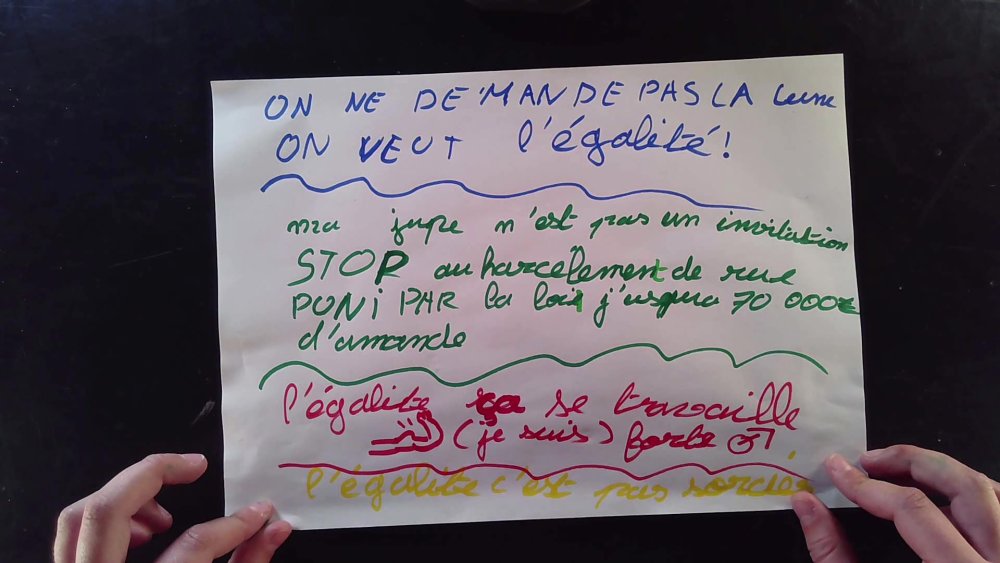 ON NE DE'MANDE PAS LA lune
ON VEUT l'égalité!
ma jupe n'est pas un invitation
STOP au harcèlement de rue
PUNi PAR la loi j'usqua 70 000€
d'amande
l'égalite ça se travaille
(je suis) forte
l'égalite c'est pas sorcier